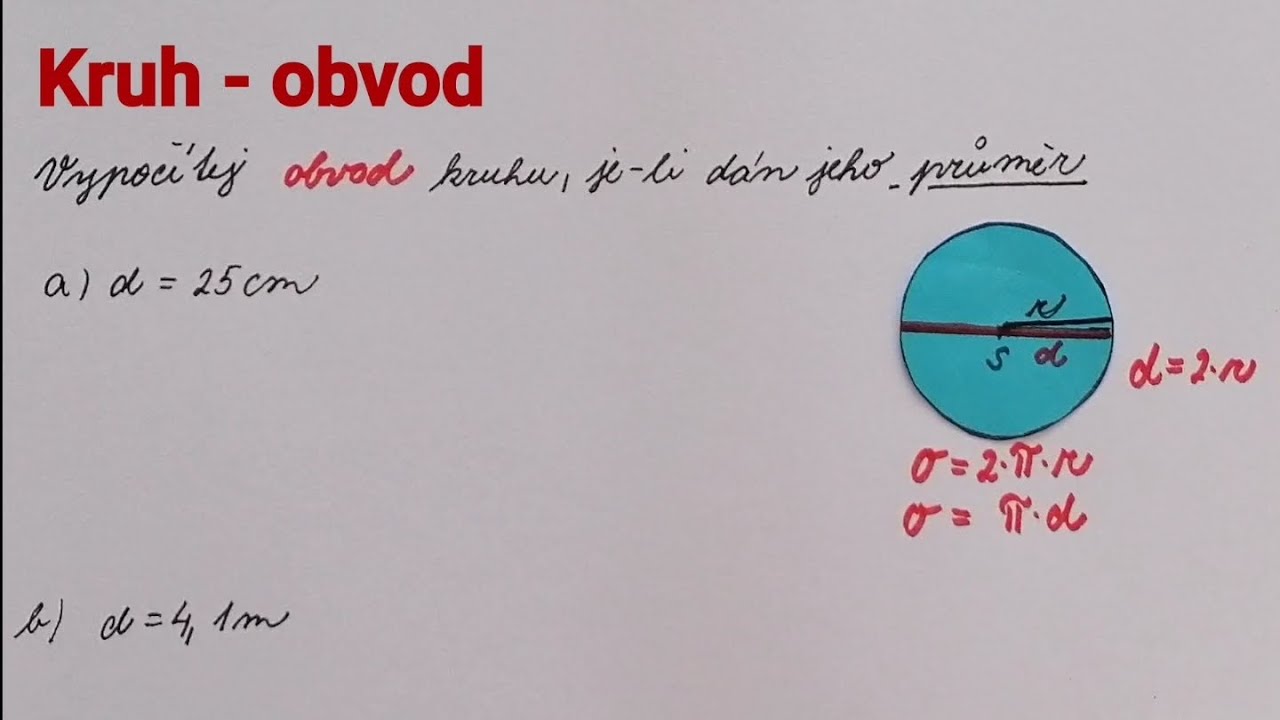 Kruh - obvod
Vypočítej obvod kruhu, je-li dán jeho průměr
a) d = 25 cm
r
S d
d = 2·r
o = 2·π·r
o = π·d
b) d = 4,1 m